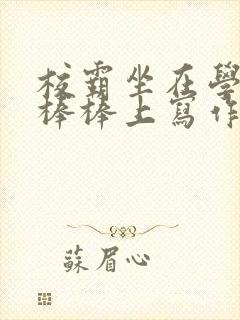 校霸坐在學
棒棒上寫作
蘇眉心